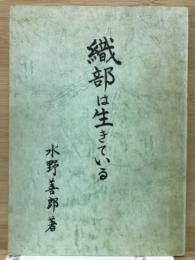 織部は生きている
水野善郎著